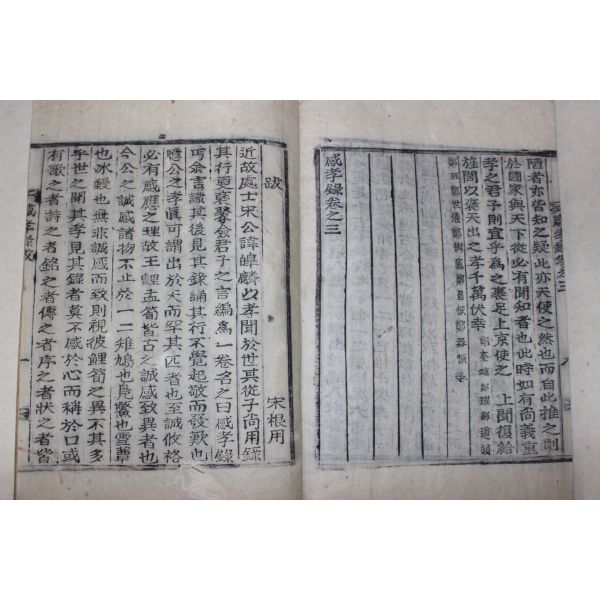 陋者亦皆知之疑此亦天使之然也而自此推之則
於國家與天下從必有聞知者也此時如有尚義重
孝之君子則宜乎為之裹足上京使之 上聞復給
旌閭以褒天出之孝千萬伏幸
感孝錄卷之三
跋
宋根用
近故處士宋公諱皥麟以孝聞於世其從子尚用錄
其行更裒聚僉君子之言編為一卷名之曰感孝錄
丐余言識其後見其錄誦其行不覺起敬而發歎也
噫公之孝眞可謂出於天而罕其匹者也至誠攸格
必有感應之理故王鯉孟筍皆古之誠感致異者也
今公之誠感諸物不止於一二雉鳩也鳧鱉也雪蕈
也氷鰻也無非誠感而致則視彼鯉筍之異不其多
乎世之聞其孝見其錄者莫不感於心而稱於口或
有歌之者詩之者銘之者傳之者序之者狀之者皆